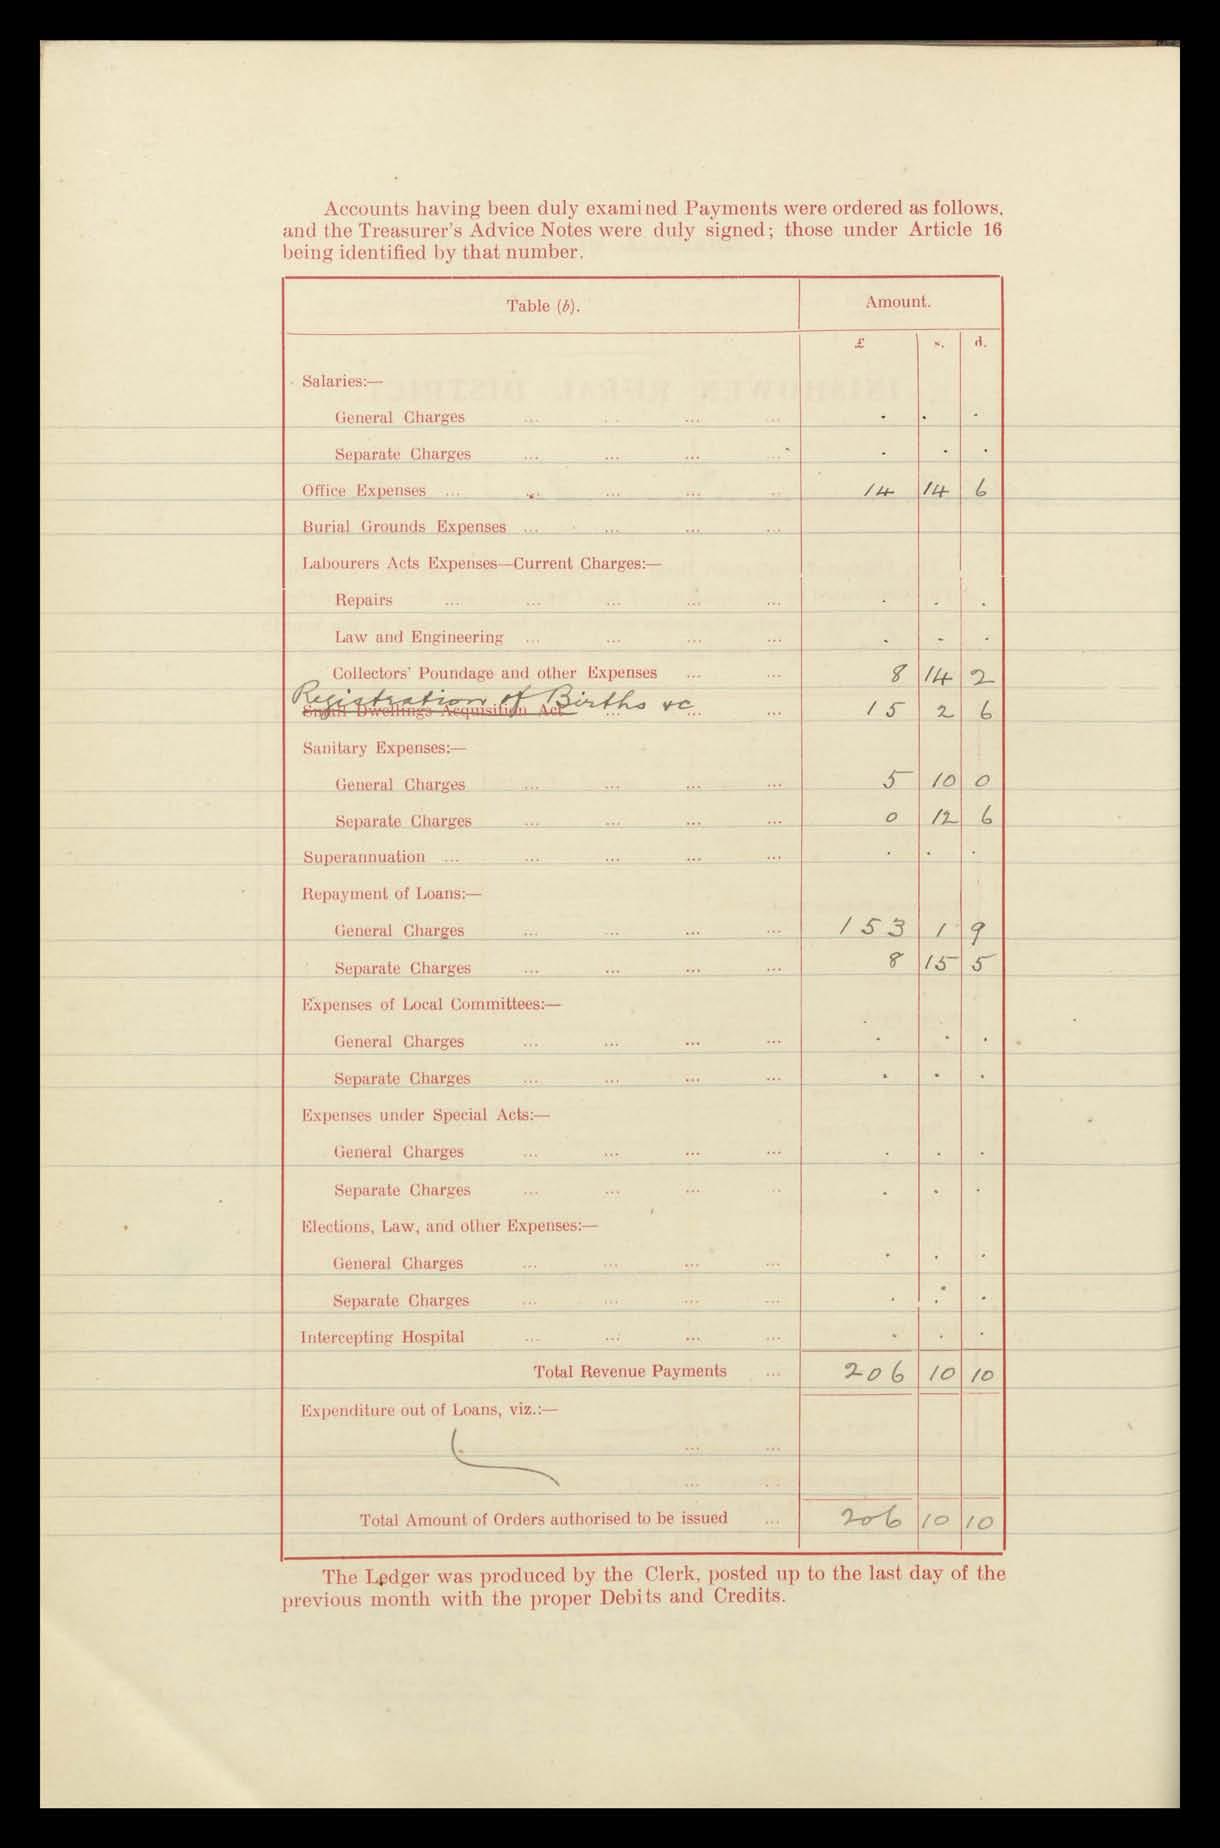 Accounts having been duly examined Payments were ordered as follows,
and the Treasurer's Advice Notes were duly signed; those under Article 16
being identified by that number.
Table (b). Amount.
£ s. d.
Salaries:—
General Charges ... ... ... ... . . .
Separate Charges ... ... ... ... . . .
Office Expenses ... ... ... ... ... 14 14 6
Burial Grounds Expenses ... ... ... ...
Labourers Acts Expenses—Current Charges:—
Repairs ... ... ... ... ... . . .
Law and Engineering ... ... ... ... . . .
Collectors' Poundage and other Expenses ... ... 8 14 2
Registration of Births &c
Small Dwellings Acquisition Act ... ... ... 15 2 6
Sanitary Expenses:—
General Charges ... ... ... ... 5 10 0
Separate Charges ... ... ... ... 0 12 6
Superannuation ... ... ... ... . . .
Repayment of Loans:—
General Charges ... ... ... ... 153 1 9
Separate Charges ... ... ... ... 8 15 5
Expenses of Local Committees:—
General Charges ... ... ... ... . . .
Separate Charges ... ... ... ... . . .
Expenses under Special Acts:—
General Charges ... ... ... ... . . .
Separate Charges ... ... ... ... . . .
Elections, Law, and other Expenses:—
General Charges ... ... ... ... . . .
Separate Charges ... ... ... ... . . .
Intercepting Hospital ... ... ... ... . . .
Total Revenue Payments ... 206 10 10
Expenditure out of Loans, viz.:—
... ...
... ...
Total Amount of Orders authorised to be issued ... 206 10 10
The Ledger was produced by the Clerk, posted up to the last day of the
previous month with the proper Debits and Credits.